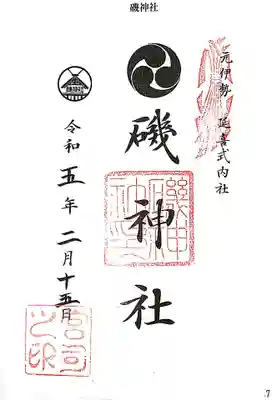 磯神社
元伊勢 延喜式内社
磯神社
令和五年二月十五日
宮司之印
7